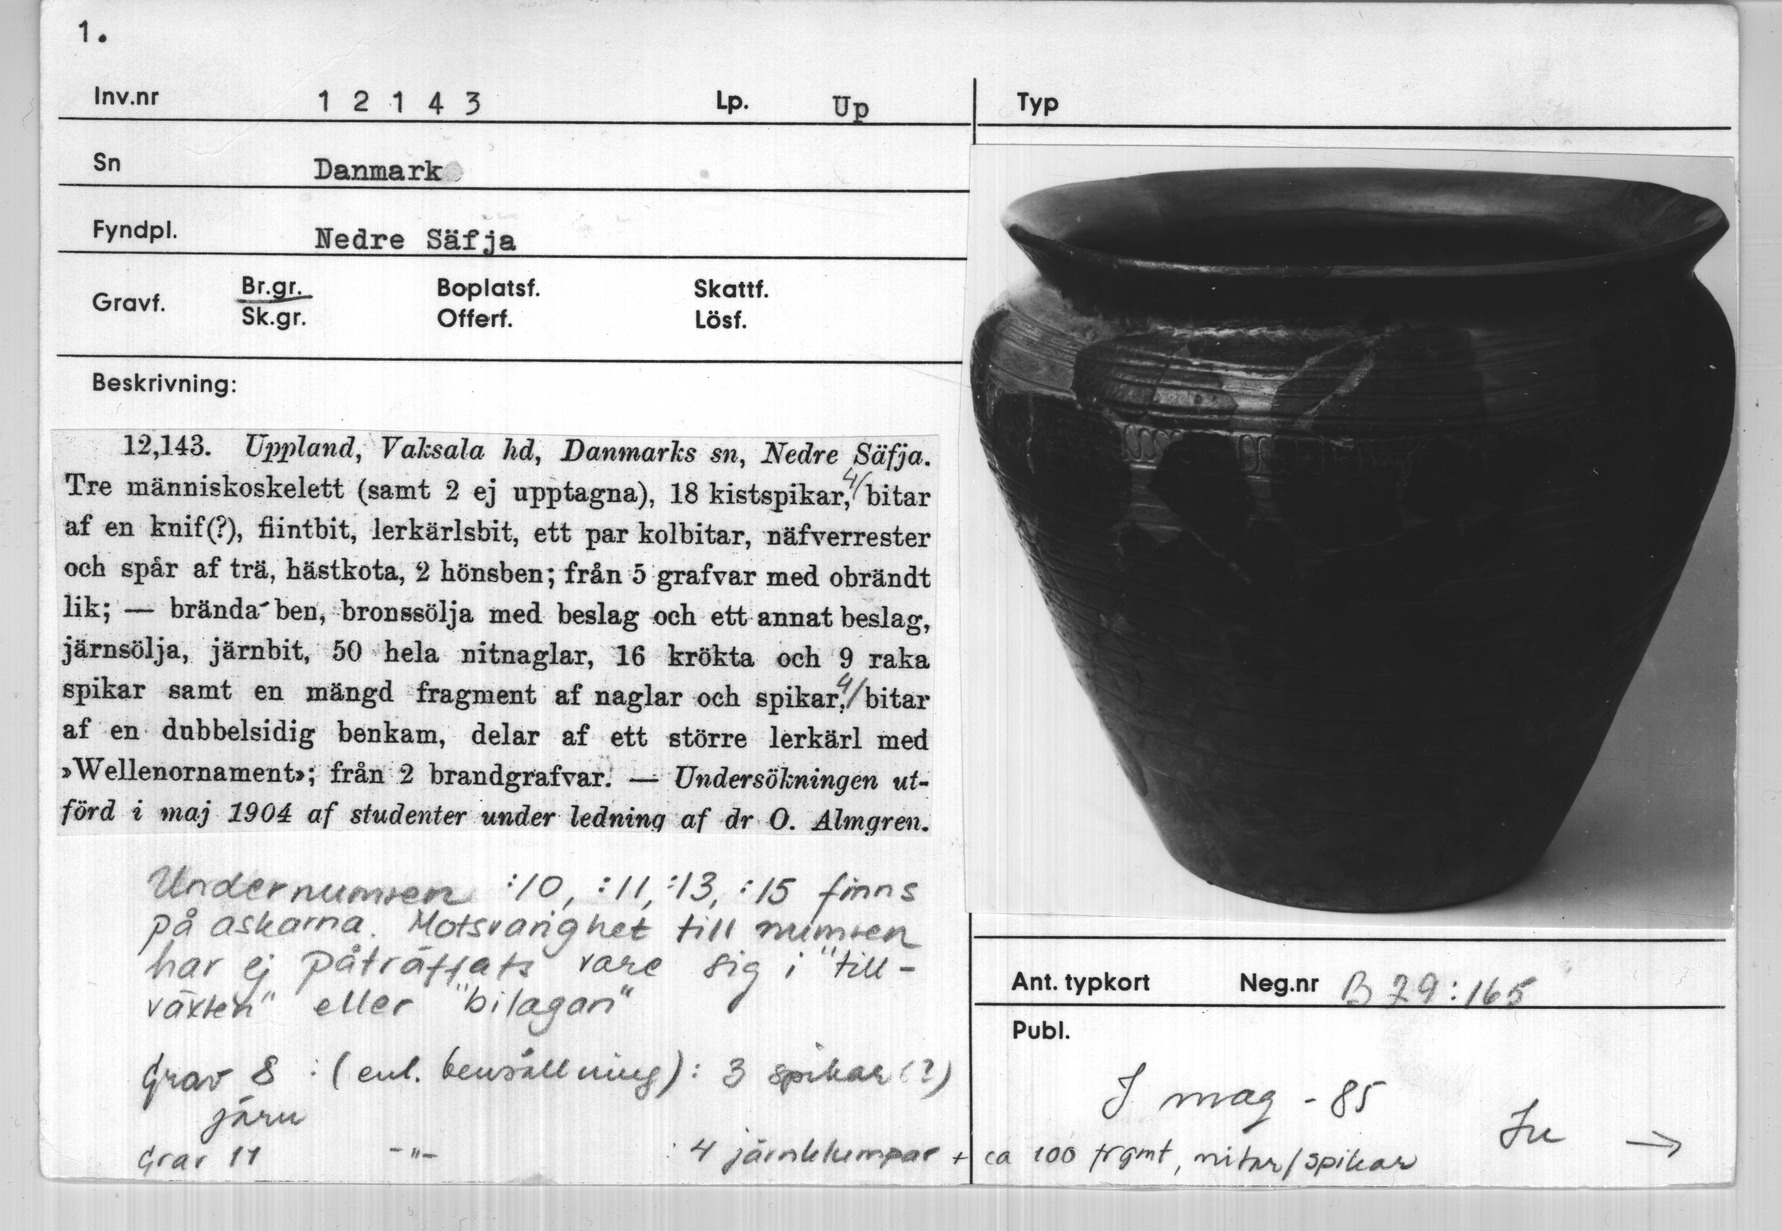 1.
Inv.nr 12143 Lp. Up Typ
Sn Danmark
Fyndpl. Nedre Säfja
Gravf. Br.gr. Boplatsf. Skattf.
Sk.gr. Offerf. Lösf.
Beskrivning:
12,143. Uppland, Vaksala hd, Danmarks sn, Nedre Säfja.
Tre människoskelett (samt 2 ej upptagna), 18 kistspikar, 4/ bitar
af en knif(?), flintbit, lerkärlsbit, ett par kolbitar, näfverrester
och spår af trä, hästkota, 2 hönsben; från 5 grafvar med obrändt
lik; — brända ben, bronssölja med beslag och ett annat beslag,
järnsölja, järnbit, 50 hela nitnaglar, 16 krökta och 9 raka
spikar samt en mängd fragment af naglar och spikar, 4/ bitar
af en dubbelsidig benkam, delar af ett större lerkärl med
»Wellenornament»; från 2 brandgrafvar. — Undersökningen ut-
förd i maj 1904 af studenter under ledning af dr O. Almgren.
Undernumren :10, :11, :13, :15 finns
på askarna. Motsvarighet till numren
har ej påträffats vare sig i "till-
växten" eller "bilagan"
Grav 8 : (enl. ): 3 spikar (?)
järn
Grav 11 -"- 4 järnklumpar + ca 100 frgmt, nitar/spikar
Ant. typkort Neg.nr B 29:165
Publ.
I mag -85
→